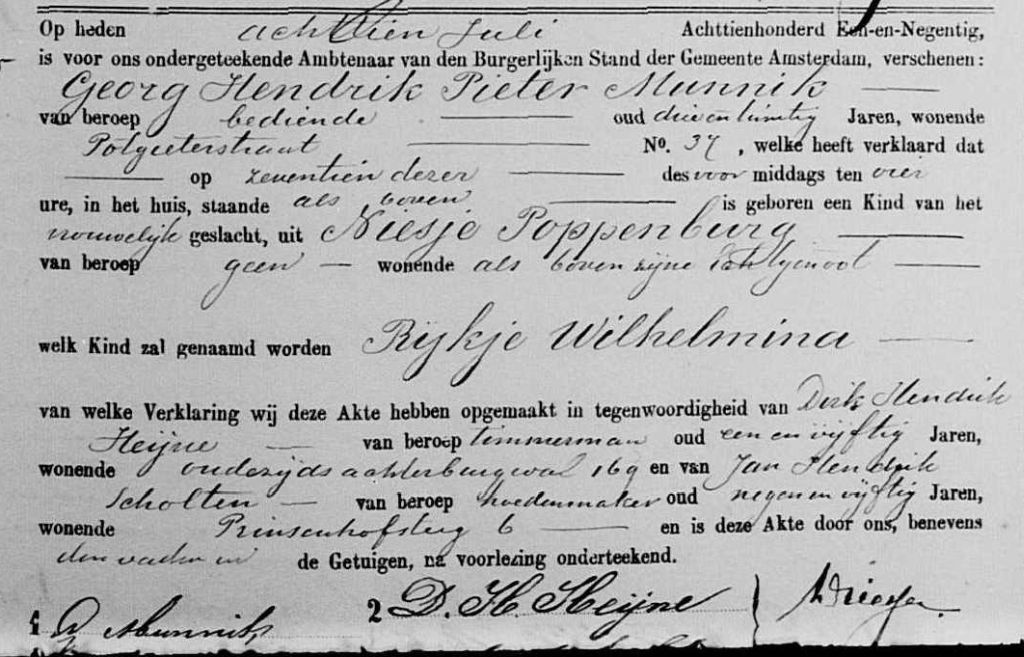 Op heden achttien Juli Achttienhonderd Een-en-Negentig,
is voor ons ondergeteekende Ambtenaar van den Burgerlijken Stand der Gemeente Amsterdam, verschenen:
Georg Hendrik Pieter Munnik
van beroep bediende oud drie en twintig Jaren, wonende
Potgieterstraat No. 37, welke heeft verklaard dat
op zeventien dezer des voor middags ten vier
ure, in het huis, staande als boven is geboren een Kind van het
vrouwelijk geslacht, uit Niesje Poppenburg
van beroep geen wonende als boven zijne Echtgenoot
welk Kind zal genaamd worden Rijkje Wilhelmina
van welke Verklaring wij deze Akte hebben opgemaakt in tegenwoordigheid van Dirk Hendrik
Heijne van beroep timmerman oud een en vijftig Jaren,
wonende oudezijds achterburgwal 169 en van Jan Hendrik
Scholten van beroep hoedenmaker oud negen en vijftig Jaren,
wonende Prinsenhofsteeg 6 en is deze Akte door ons, benevens
den vader en de Getuigen, na voorlezing onderteekend.
1 G Munnik 2 D. H. Heijne